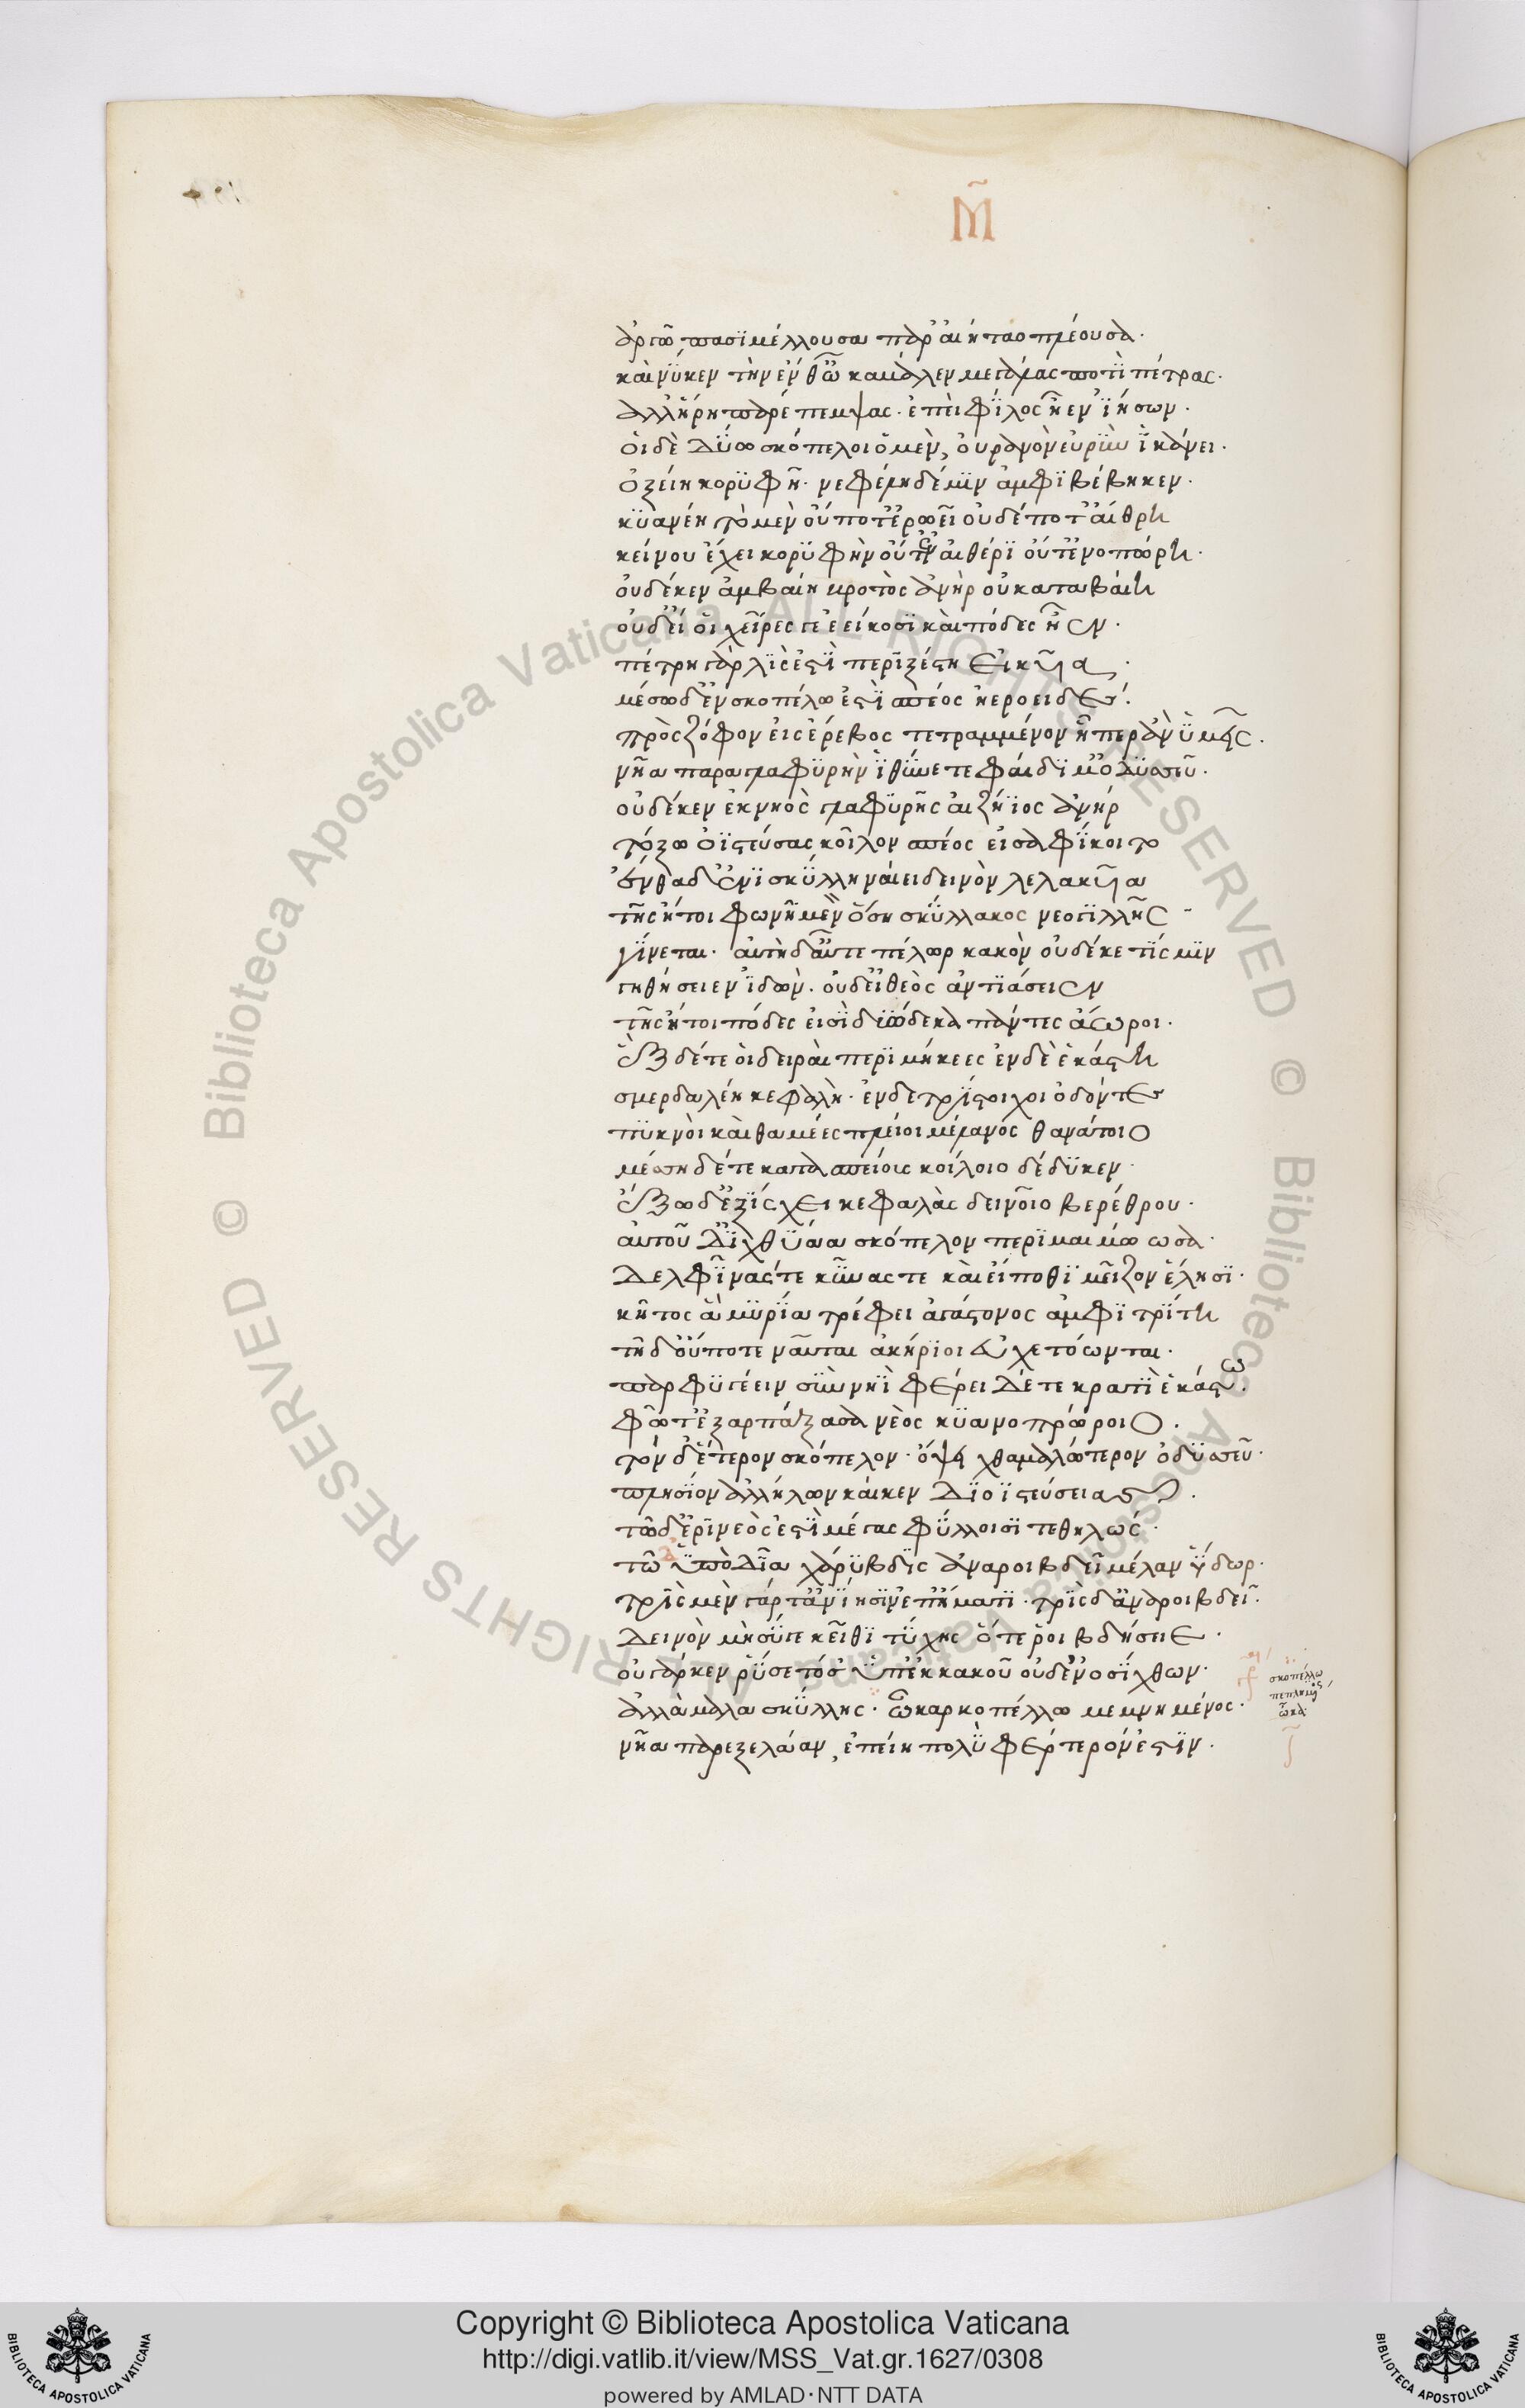 Μ̃
ἀργὼ πασιμέλλουσα παρ' αἰήταο πλέουσα·
καί νύκεν τὴν ἔνθ' ὦκα βάλεν μεγάλας ποτὶ πέτρας·
ἀλλ' ἥρη παρέπεμψας· ἐπεὶ φίλος ἦεν ἰήσων·
οἱ δὲ δύω σκόπελοι ὁ μὲν, οὐρανὸν εὐρὺν ἱκάνει·
ὀξείη κορυφῆ· νεφέλη δέ μιν ἀμφιβέβηκεν·
κυανέη τὸ μὲν οὔποτ' ἐρωεῖ οὐδέποτ' αἴθρη
κείνου ἔχει κορυφὴν οὔτ' ἐν αἰθέρι οὔτ' ἐν ὀπώρη·
οὐδέ κεν ἀμβαίη βροτὸς ἀνὴρ οὐ καταβαίη
οὐδ' εἴ οἱ χεῖρες γε ἐείκοσι καὶ πόδες ἦσν·
πέτρη γὰρ λίς ἐστὶ περιξέστη εἰκυῖα·
μέσω δ' ἐν σκοπέλω ἐστὶ σπέος ἠεροειδές·
πρὸς ζόφον εἰς ἔρεβος τετραμμένον ἧπερ ἂν ὑμεῖς·
νῆα παρα γλαφυρὴν ἰθύνετε φαίδιμ' ὀδυσεῦ·
οὐδέ κεν ἐκ νηὸς γλαφυρῆς αἰζήϊος ἀνήρ
τόξω ὀϊστεύσας κοῖλον σπέος εἰσαφίκοιτο
ἔνθα δ' ἐνὶ σκύλλη ναίει δεινὸν λελακυῖα
τῆς ἤτοι φωνῆ μὲν ὅση σκύλλακος νεογιλλῆς
γίνεται· αὐτὴ δ' αὖτε πέλωρ κακὸν οὐδέ κε τίς μιν
γηθήσειεν ἰδὼν· οὐδ' εἰ θεὸς ἀντιάσειεν
τῆς ἤτοι πόδες εἰσὶ δυώδεκα πάντες ἄωροι·
ἓξ δέ τε οἱ δειραὶ περιμήκεες ἐν δὲ ἑκάστη
σμερδαλέη κεφαλὴ· ἐν δε τρίστοιχοι ὀδόντες
πυκνοὶ καὶ θαμέες πλεῖοι μέλανός θανάτοιο
μέσση δέ τε κατὰ σπείους κοίλοιο δέδυκεν·
ἔξω δ' ἐξίσχει κεφαλὰς δεινοῖο βερέθρου·
αὐτοῦ δ' ἰχθυάα σκόπελον περιμαιμώωσα·
δελφῖνάς τε κύνας τε καὶ εἴποθι μεῖζον ἕλησι·
κῆτος ἃ μυρία τρέφει ἀγάστονος ἀμφιτρίτη
τῆ δ' οὔποτε ναῦται ἀκήριοι εὐχετόωνται·
παρφυγέειν σὺν νηῒ φέρει δέ τε κρατὶ ἑκάστω·
φῶτ' ἐξαρπάξασα νέος κυανοπρώροιο·
τόν δ' ἕτερον σκόπελον· ὄψη χθαμαλώτερον ὀδυσεῦ·
πλησίον ἀλλήλων καί κεν διοϊστεύσειας·
τῶ δ' ἐρινεός ἐστὶ μέγας φύλλοισι τεθηλώς·
τῶ δ' ὑπὸ δῖα χάρυβδις ἀναροιβδεῖ μέλαν ὕδωρ·
τρὶς μὲν γάρ τ' ἀνίησιν ἐπ' ἤματι· τρὶς δ' ἀναροιβδεῖ·
δεινὸν μὴ σύ γε κεῖθι τύχης ὅτε ῥοιβδήσειε·
οὐ γάρ κεν ῥύσετό σ' ὑπ' ἐκ κακοῦ οὐδ' ἐνοσίχθων·
ἀλλὰ μάλα σκύλλης· ὦκα ρκοπέλλω μεμνημένος·
νῆα παρεξελάαν, ἐπείη πολὺ φέρτερόν ἐστιν·
σκοπέλλω
πεπλημένος
ὦκα·
Copyright © Biblioteca Apostolica Vaticana
http://digi.vatlib.it/view/MSS_Vat.gr.1627/0308
powered by AMLAD·NTT DATA